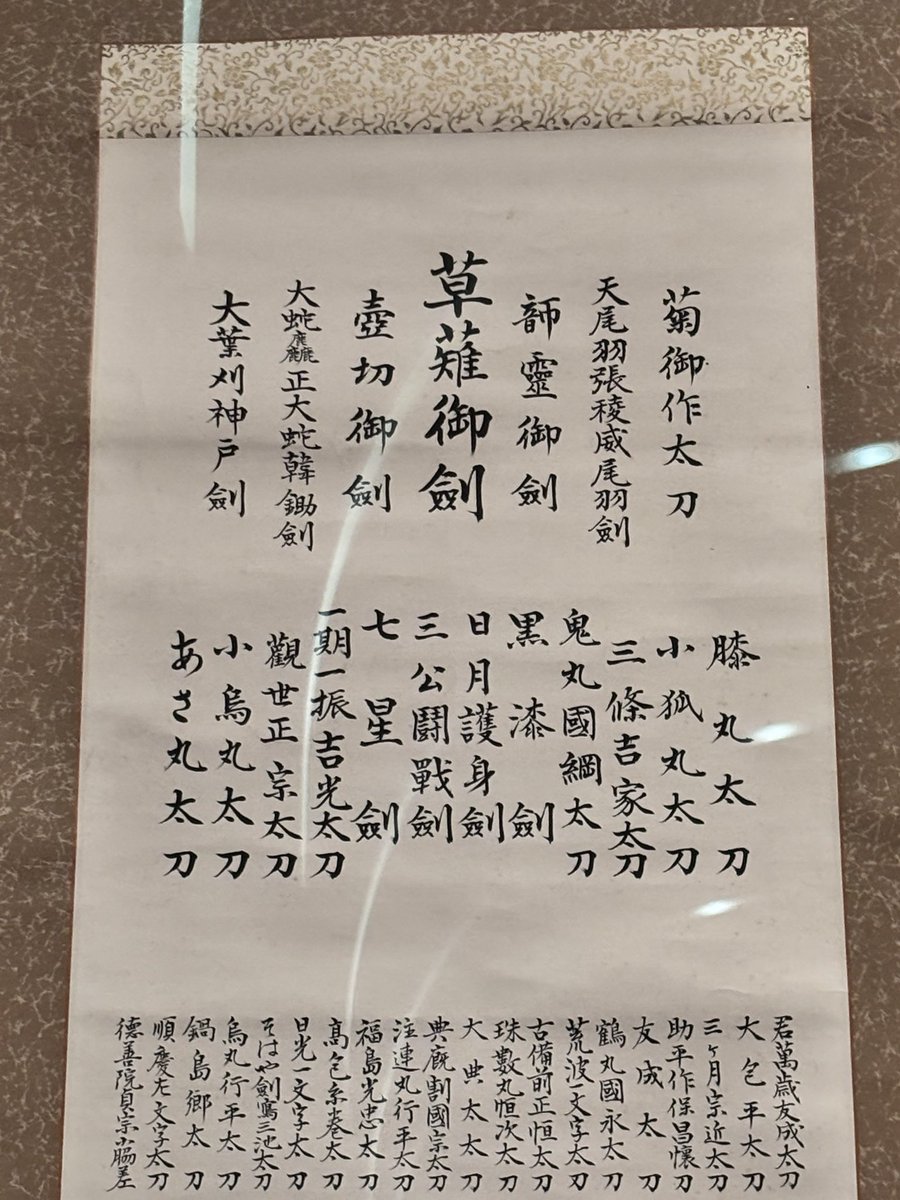 菊御作太刀
天尾羽張稜威尾羽劍
韴靈御劍
草薙御劍
壺切御劍
大蛇麤正大蛇韓鋤劍
大葉刈神戸劍
膝丸太刀
小狐丸太刀
三條吉家太刀
鬼丸國綱太刀
黒漆劍
日月護身劍
三公鬪戰劍
七星劍
一期一振吉光太刀
觀世正宗太刀
小烏丸太刀
あさ丸太刀
君萬歳友成太刀
大包平太刀
三ヶ月宗近太刀
助平作保昌懷
友成太刀
鶴丸國永太刀
荒波一文字太刀
古備前正恒太刀
珠數丸恒次太刀
大典太太刀
典厩割國宗太刀
注連丸行平太刀
福島光忠太刀
髙包糸巻太刀
日光一文字太刀
そはや劍寫三池太刀
烏丸行平太刀
鍋島郷太刀
順慶左文字太刀
德善院貞宗小脇差